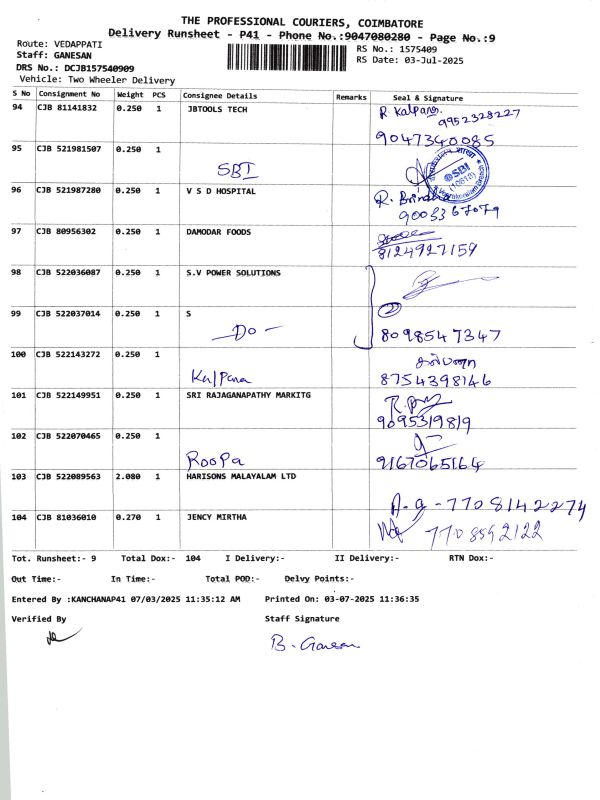 THE PROFESSIONAL COURIERS, COIMBATORE
Delivery Runsheet - P41 - Phone No.:9047080280 - Page No.:9
Route: VEDAPPATI
RS No.: 1575409
Staff: GANESAN
RS Date: 03-Jul-2025
DRS No.: DCJB157540909
Vehicle: Two Wheeler Delivery
S No Consignment No Weight PCS Consignee Details Remarks Seal & Signature
94 CJB 81141832 0.250 1 JBTOOLS TECH R Kalpana 9952328227
9047340085
95 CJB 521981507 0.250 1
SBI
SBI
96 CJB 521987280 0.250 1 V S D HOSPITAL
97 CJB 80956302 0.250 1 DAMODAR FOODS
8124927159
98 CJB 522036087 0.250 1 S.V POWER SOLUTIONS
99 CJB 522037014 0.250 1 S 2
—Do— 8098547347
100 CJB 522143272 0.250 1 கல்பனா
Kalpana 8754398146
101 CJB 522149951 0.250 1 SRI RAJAGANAPATHY MARKITG
9095319819
102 CJB 522070465 0.250 1
Roopa 9167065164
103 CJB 522089563 2.080 1 HARISONS MALAYALAM LTD
A.g - 7708142274
104 CJB 81036010 0.270 1 JENCY MIRTHA 7708592122
Tot. Runsheet:- 9 Total Dox:- 104 I Delivery:- II Delivery:- RTN Dox:-
Out Time:- In Time:- Total POD:- Delvy Points:-
Entered By :KANCHANAP41 07/03/2025 11:35:12 AM Printed On: 03-07-2025 11:36:35
Verified By Staff Signature
B. Ganesan